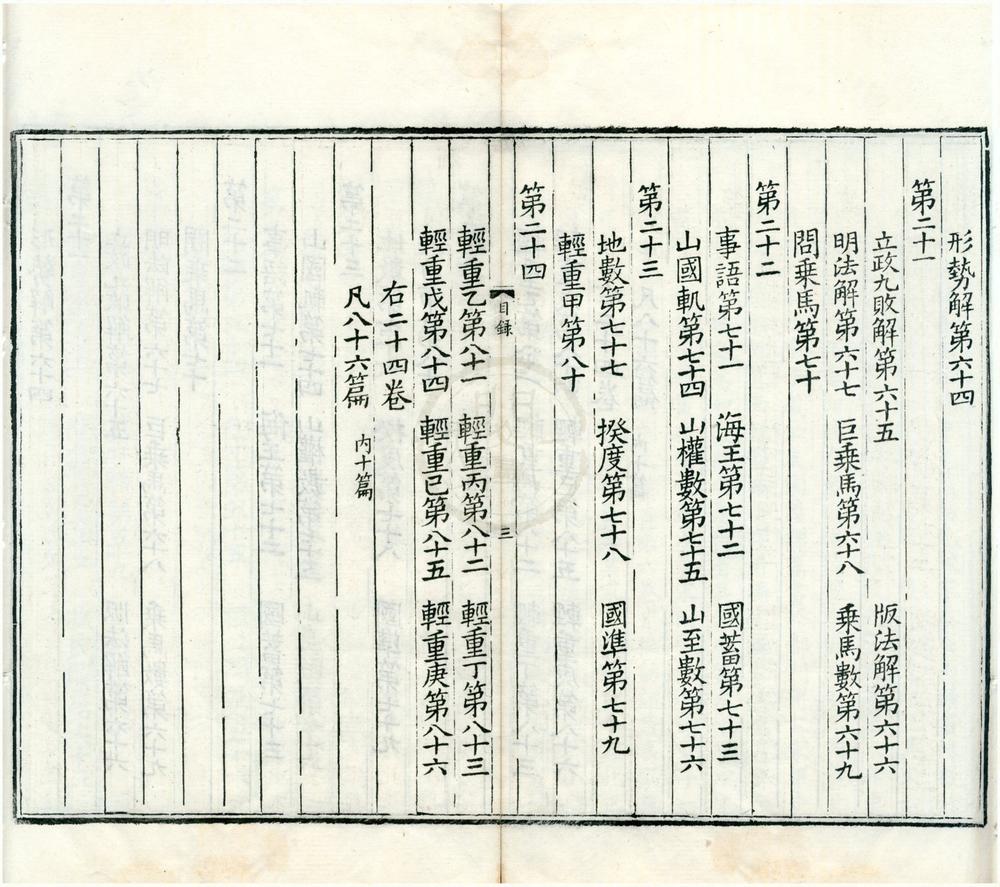 形勢解第六十四
第二十一
立政九敗解第六十五　版法解第六十六
明法解第六十七　巨乗馬第六十八　乗馬數第六十九
問乗馬第七十
第二十二
事語第七十一　海王第七十二　國蓄第七十三
山國軌第七十四　山權數第七十五　山至數第七十六
第二十三
地數第七十七　揆度第七十八　國準第七十九
輕重甲第八十
第二十四
目録　三
輕重乙第八十一　輕重丙第八十二　輕重丁第八十三
輕重戊第八十四　輕重己第八十五　輕重庚第八十六
右二十四卷
凡八十六篇　内十篇